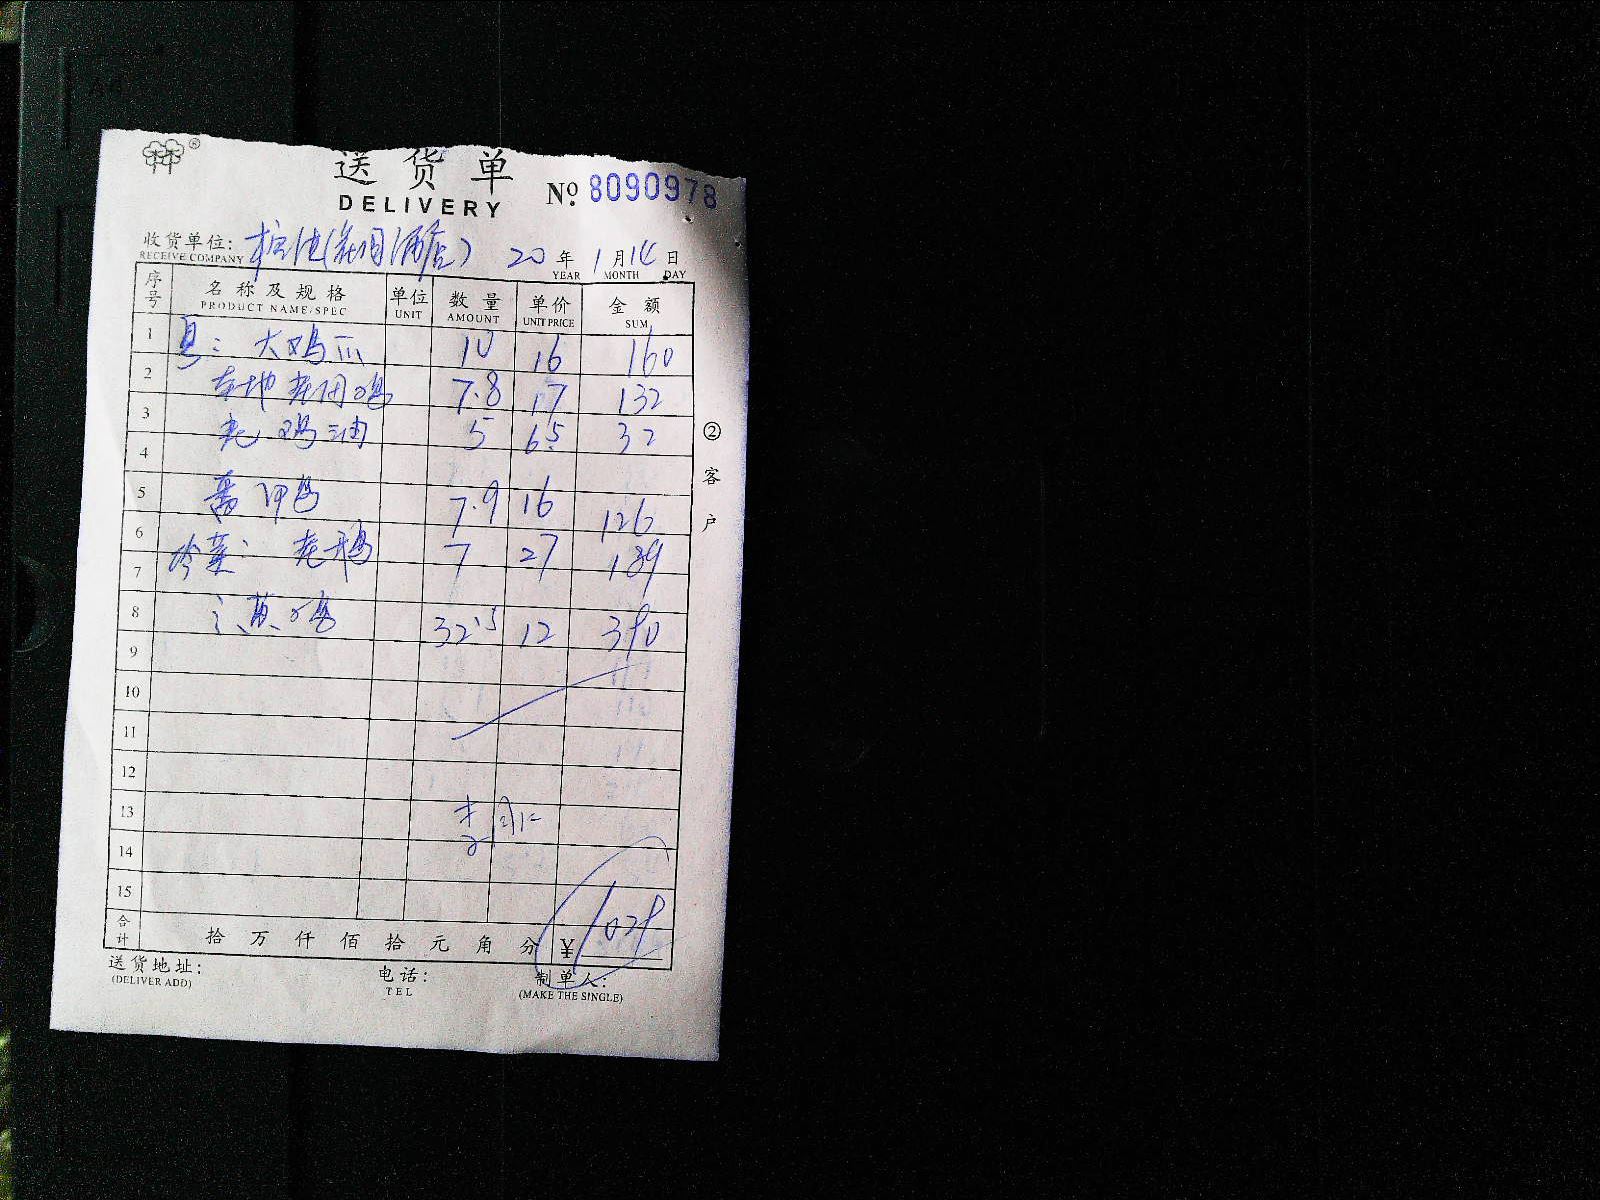 ®
送货单
DELIVERY
No. 8090978
收货单位: (花园酒店) 20年 1月 14日
RECEIVE COMPANY YEAR MONTH DAY
序号 名称及规格 单位 数量 单价 金额
PRODUCT NAME/SPEC UNIT AMOUNT UNIT PRICE SUM
1 大鸡爪 10 16 160
2 本地老母鸡 7.8 17 132
3 老鸡油 5 6.5 32
4
5 7.9 16 126
6 冷菜: 老鸭 7 27 189
7
8 鸡 32.5 12 390
9
10
11
12
13
14
15
合计 拾万仟佰拾元角分 ¥ 1029
送货地址: 电话: 制单人:
(DELIVER ADD) TEL (MAKE THE SINGLE)
②客户